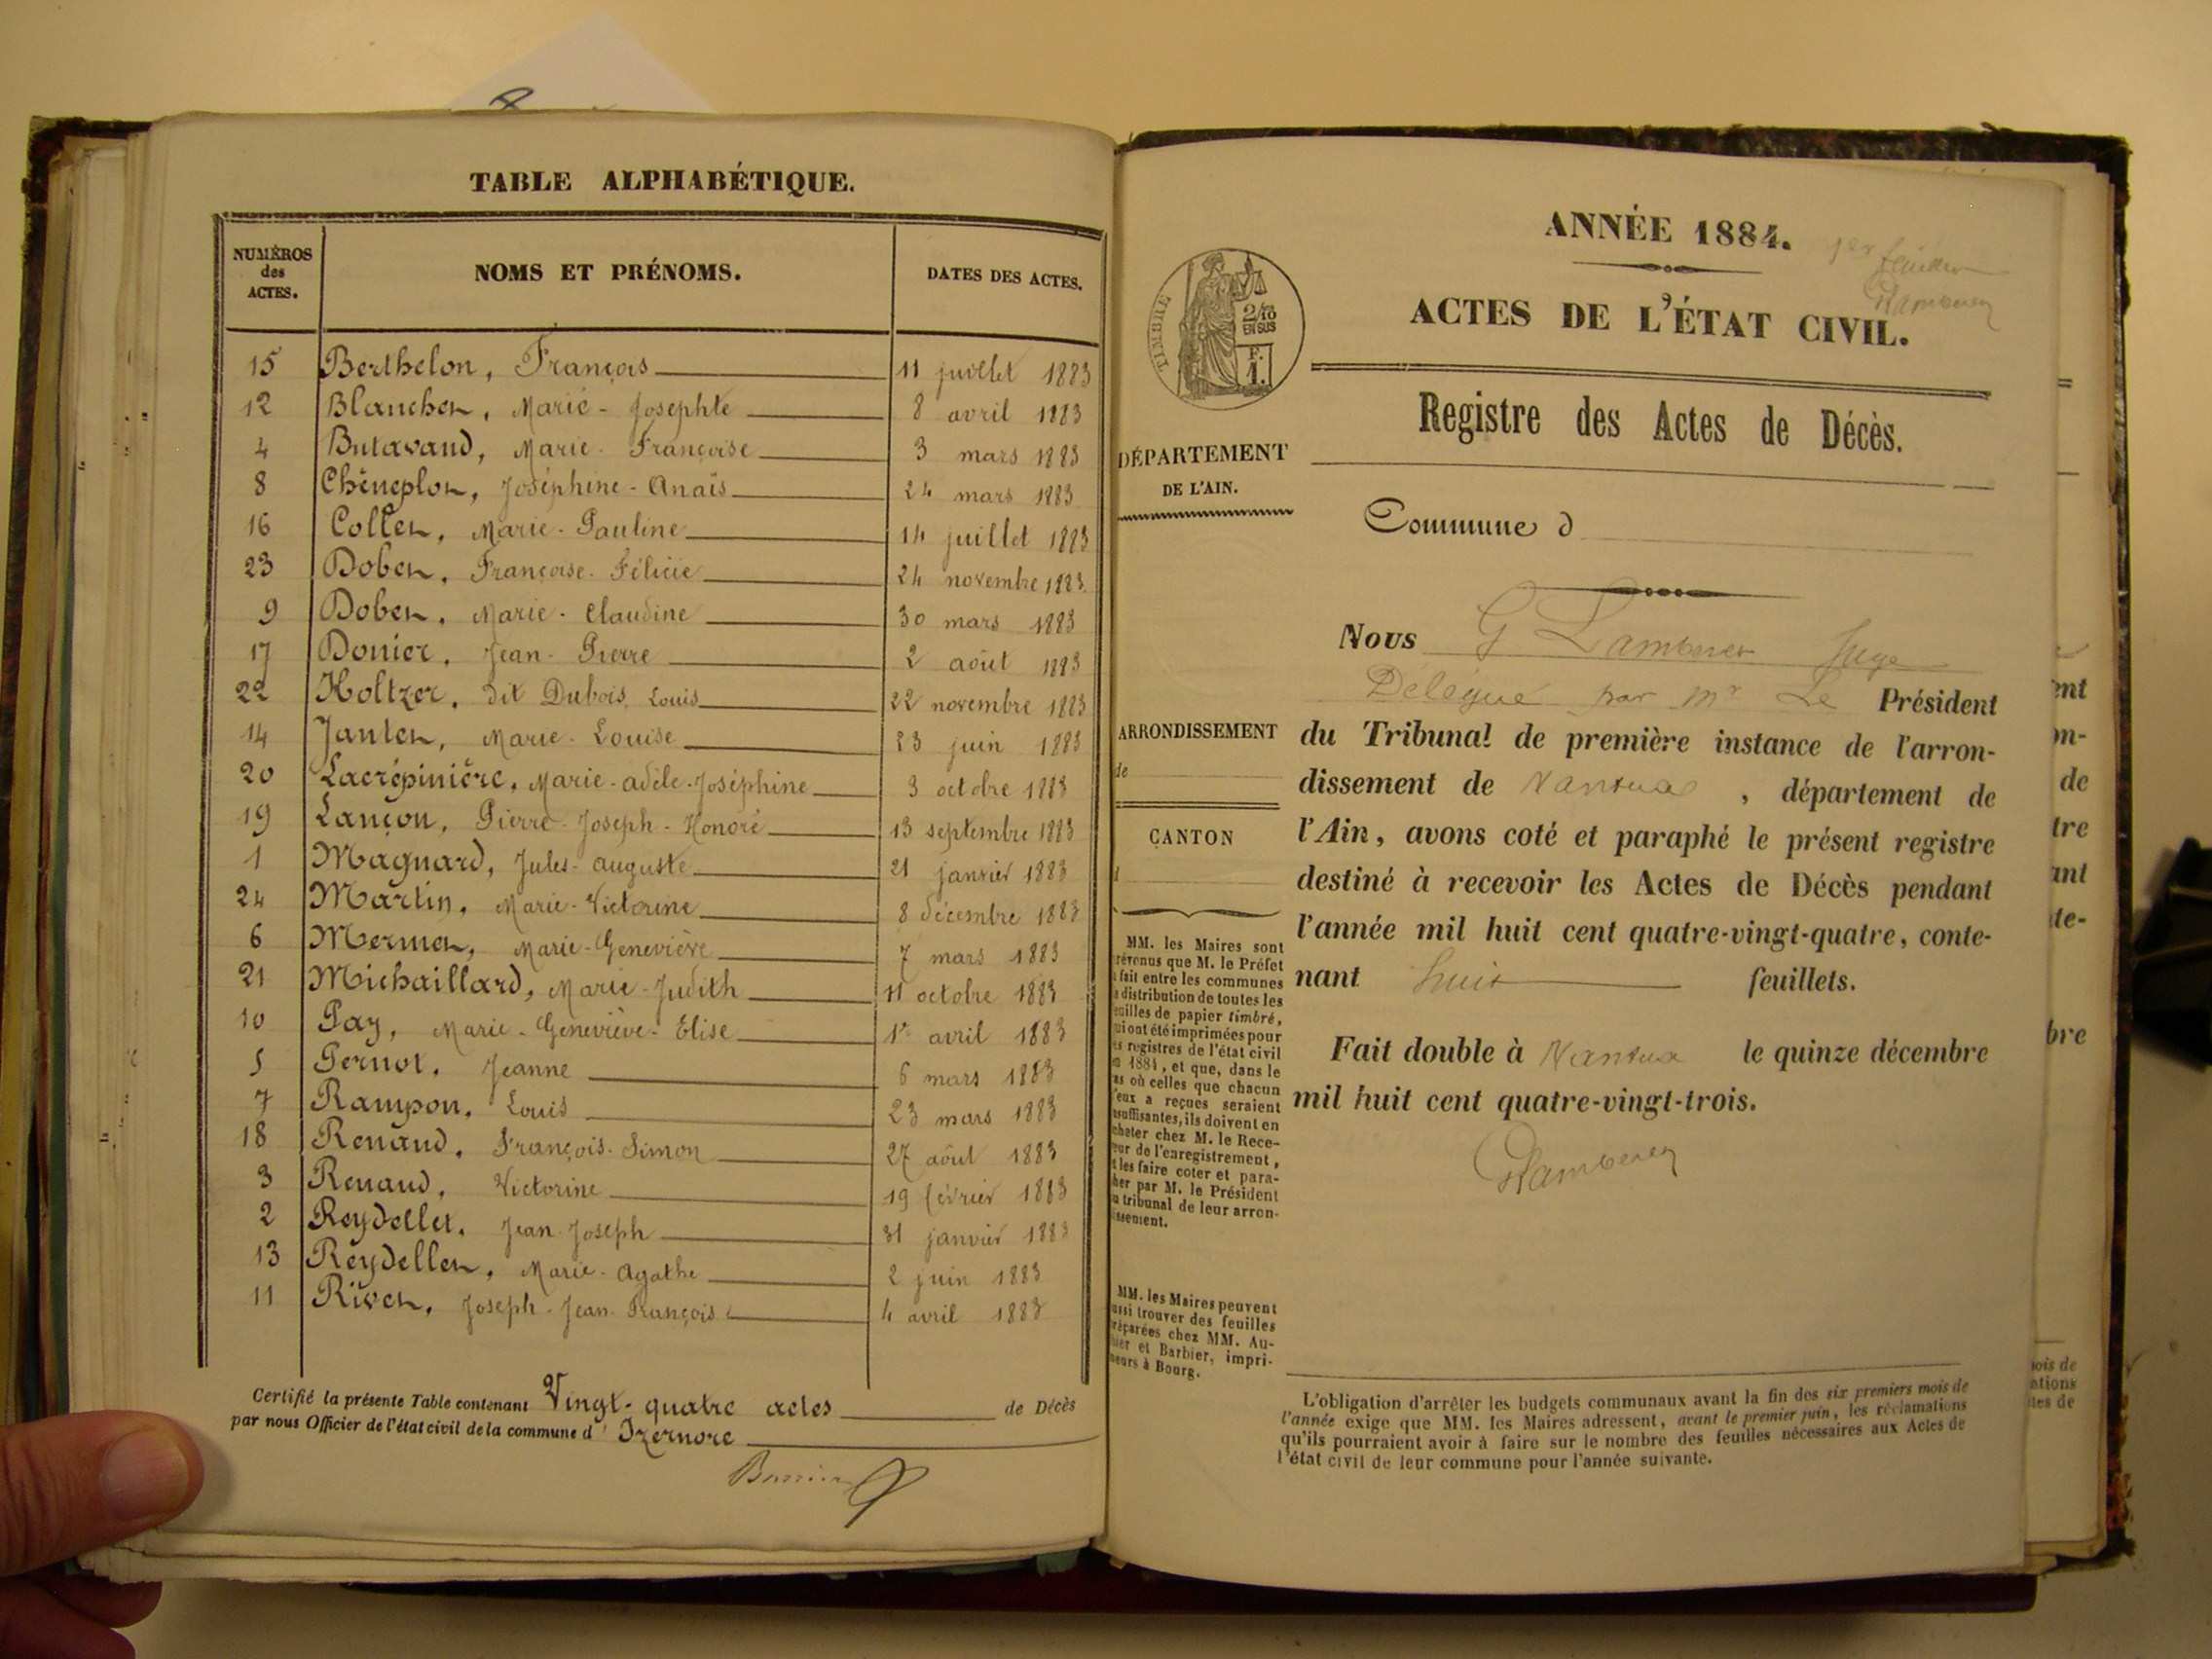 TABLE ALPHABÉTIQUE.
NUMÉROS des ACTES. NOMS ET PRÉNOMS. DATES DES ACTES.
15 Berthelon, François 11 juillet 1883
12 Blanchet, Marie-Josephte 8 avril 1883
4 Butavand, Marie-Françoise 3 mars 1883
8 Chêneplot, Joséphine-Anaïs 24 mars 1883
16 Collet, Marie-Pauline 14 juillet 1883
23 Dobet, Françoise-Félicie 24 novembre 1883
9 Dobet, Marie-Claudine 30 mars 1883
17 Donier, Jean-Pierre 2 août 1883
22 Holtzer, dit Dubois, Louis 22 novembre 1883
14 Jantet, Marie-Louise 23 juin 1883
20 Lacrépinière, Marie-adèle-Joséphine 3 octobre 1883
19 Lançon, Pierre-Joseph-Honoré 13 septembre 1883
1 Magnard, Jules-auguste 21 janvier 1883
24 Martin, Marie-Victorine 8 décembre 1883
6 Mermet, Marie-Geneviève 7 mars 1883
21 Michaillard, Marie-Judith 11 octobre 1883
10 Pay, Marie-Geneviève-Elise 1er avril 1883
5 Pernot, Jeanne 6 mars 1883
7 Rampon, Louis 23 mars 1883
18 Renaud, François-Simon 27 août 1883
3 Renaud, Victorine 19 février 1883
2 Reydellet, Jean-Joseph 31 janvier 1883
13 Reydellet, Marie-Agathe 2 juin 1883
11 Rivet, Joseph-Jean-François 4 avril 1883
Certifié la présente Table contenant Vingt-quatre actes de Décès
par nous Officier de l'état civil de la commune d'Izernore
ANNÉE 1884.
1er feuillet
TIMBRE
2/10
EN SUS
F.
1.
ACTES DE L'ÉTAT CIVIL.
Registre des Actes de Décès.
DÉPARTEMENT
DE L'AIN.
Commune d
Nous G Lambert Juge
Délégué par Mr Le Président
ARRONDISSEMENT
de
du Tribunal de première instance de l'arron-
dissement de Nantua, département de
CANTON
d
l'Ain, avons coté et paraphé le présent registre
destiné à recevoir les Actes de Décès pendant
l'année mil huit cent quatre-vingt-quatre, conte-
nant huit feuillets.
Fait double à Nantua le quinze décembre
mil huit cent quatre-vingt-trois.
MM. les Maires sont
prévenus que M. le Préfet
a fait entre les communes
la distribution de toutes les
feuilles de papier timbré,
qui ont été imprimées pour
les registres de l'état civil
en 1884, et que, dans le
cas où celles que chacun
d'eux a reçues seraient
insuffisantes, ils doivent en
acheter chez M. le Rece-
veur de l'enregistrement,
et les faire coter et para-
pher par M. le Président
du tribunal de leur arron-
dissement.
MM. les Maires peuvent
aussi trouver des feuilles
préparées chez MM. Au-
thier et Barbier, impri-
meurs à Bourg.
L'obligation d'arrêter les budgets communaux avant la fin des six premiers mois de
l'année exige que MM. les Maires adressent, avant le premier juin, les réclamations
qu'ils pourraient avoir à faire sur le nombre des feuilles nécessaires aux Actes de
l'état civil de leur commune pour l'année suivante.